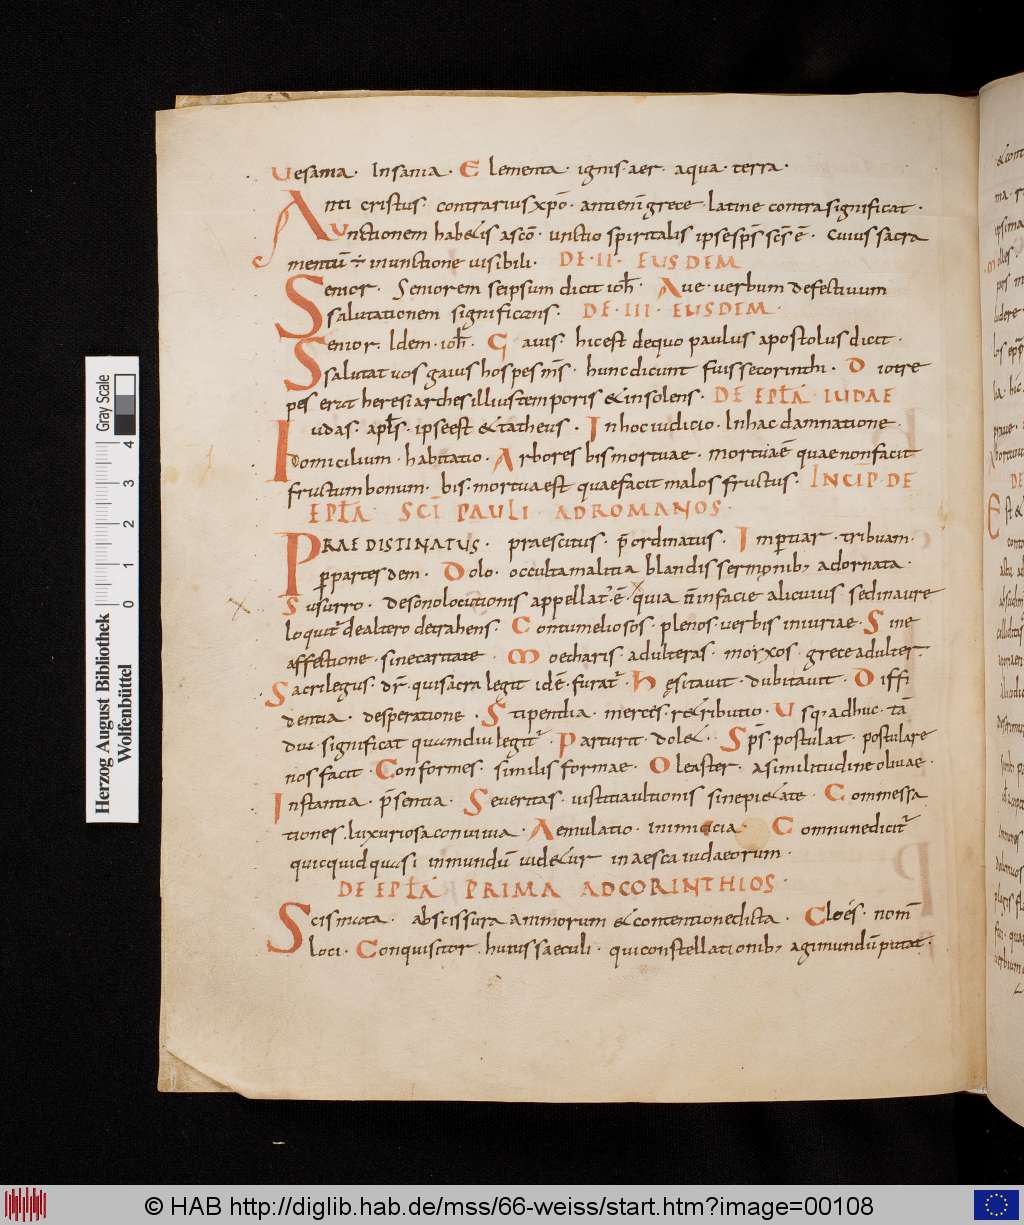 Uesania. Insania. Elementa. ignis. aer. aqua. terra.
Anti cristus. contrarius xpō. antienī grece. latine contra significat.
Unctionem habetis a scō. unctio spiritalis ipse sps̄ scs̄ ē. cuius sacra
mentū ÷ in unctione uisibili. DE. II. EUSDEM
Senior. Seniorem seipsum dicit ioh̄. Aue. uerbum defectiuum
salutationem significans. DE. III. EUSDEM.
Senior. Idem. ioh̄. Gaius. hic est de quo paulus apostolus dicit.
salutat uos gaius hospes ms̄. hunc dicunt fuisse corinthi. Diotre
pes erat heresiarches illius temporis & insolens. DE EPLĀ IUDAE
Iudas. apls̄. ipse est & tatheus. In hoc iudicio. In hac damnatione.
domicilium. habitatio. Arbores bis mortuae. mortuā ē quae non facit
fructum bonum. bis. mortua est quae facit malos fructus. INCIP̄ DE
EPLĀ SCĪ PAULI AD ROMANOS.
PRAEDISTINATUS. praescitus. p̄ordinatus. Impertiar. tribuam.
per partes dem. Dolo. occulta malitia blandis sermonib; adornata.
Susurro. de sono locutionis appellat̄. ē. quia n̄ in facie alicuius sed in aure
loquit̄ de altero detrahens. Contumeliosos. plenos. uerbis iniuriae. Sine
affectione. sine caritate. Moecharis adulteras. moechos. grece adulter.
Sacrilegus. dr̄. qui sacra legit id ē. furat̄. Hęsitauit. dubitauit. Diffi
dentia. desperatione. Stipendia. mercēs. retributio. Usq; adhuc. tā
diu significat quamdiu legit̄. Parturit. dolet. Sps̄ postulat. postulare
nos facit. Conformes. similis formae. Oleaster. a similitudine oliuae.
Instantia. p̄sentia. Seueritas. iustitia ultionis sine pietate. Commessa
tiones. luxuriosa conuiuia. Aemulatio. inimicicia. Commune dicit̄
quicquid quasi inmundū uidetur in aesca iudaeorum.
DE EPLĀ PRIMA AD CORINTHIOS.
Scismata. abscissura animorum & contentione dicta. Cloes. nom̄
loci. Conquisitor. huius saeculi. qui constellationib; agi mundū putat.
Herzog August Bibliothek
Wolfenbüttel
Gray Scale
0 1 2 3 4
© HAB http://diglib.hab.de/mss/66-weiss/start.htm?image=00108